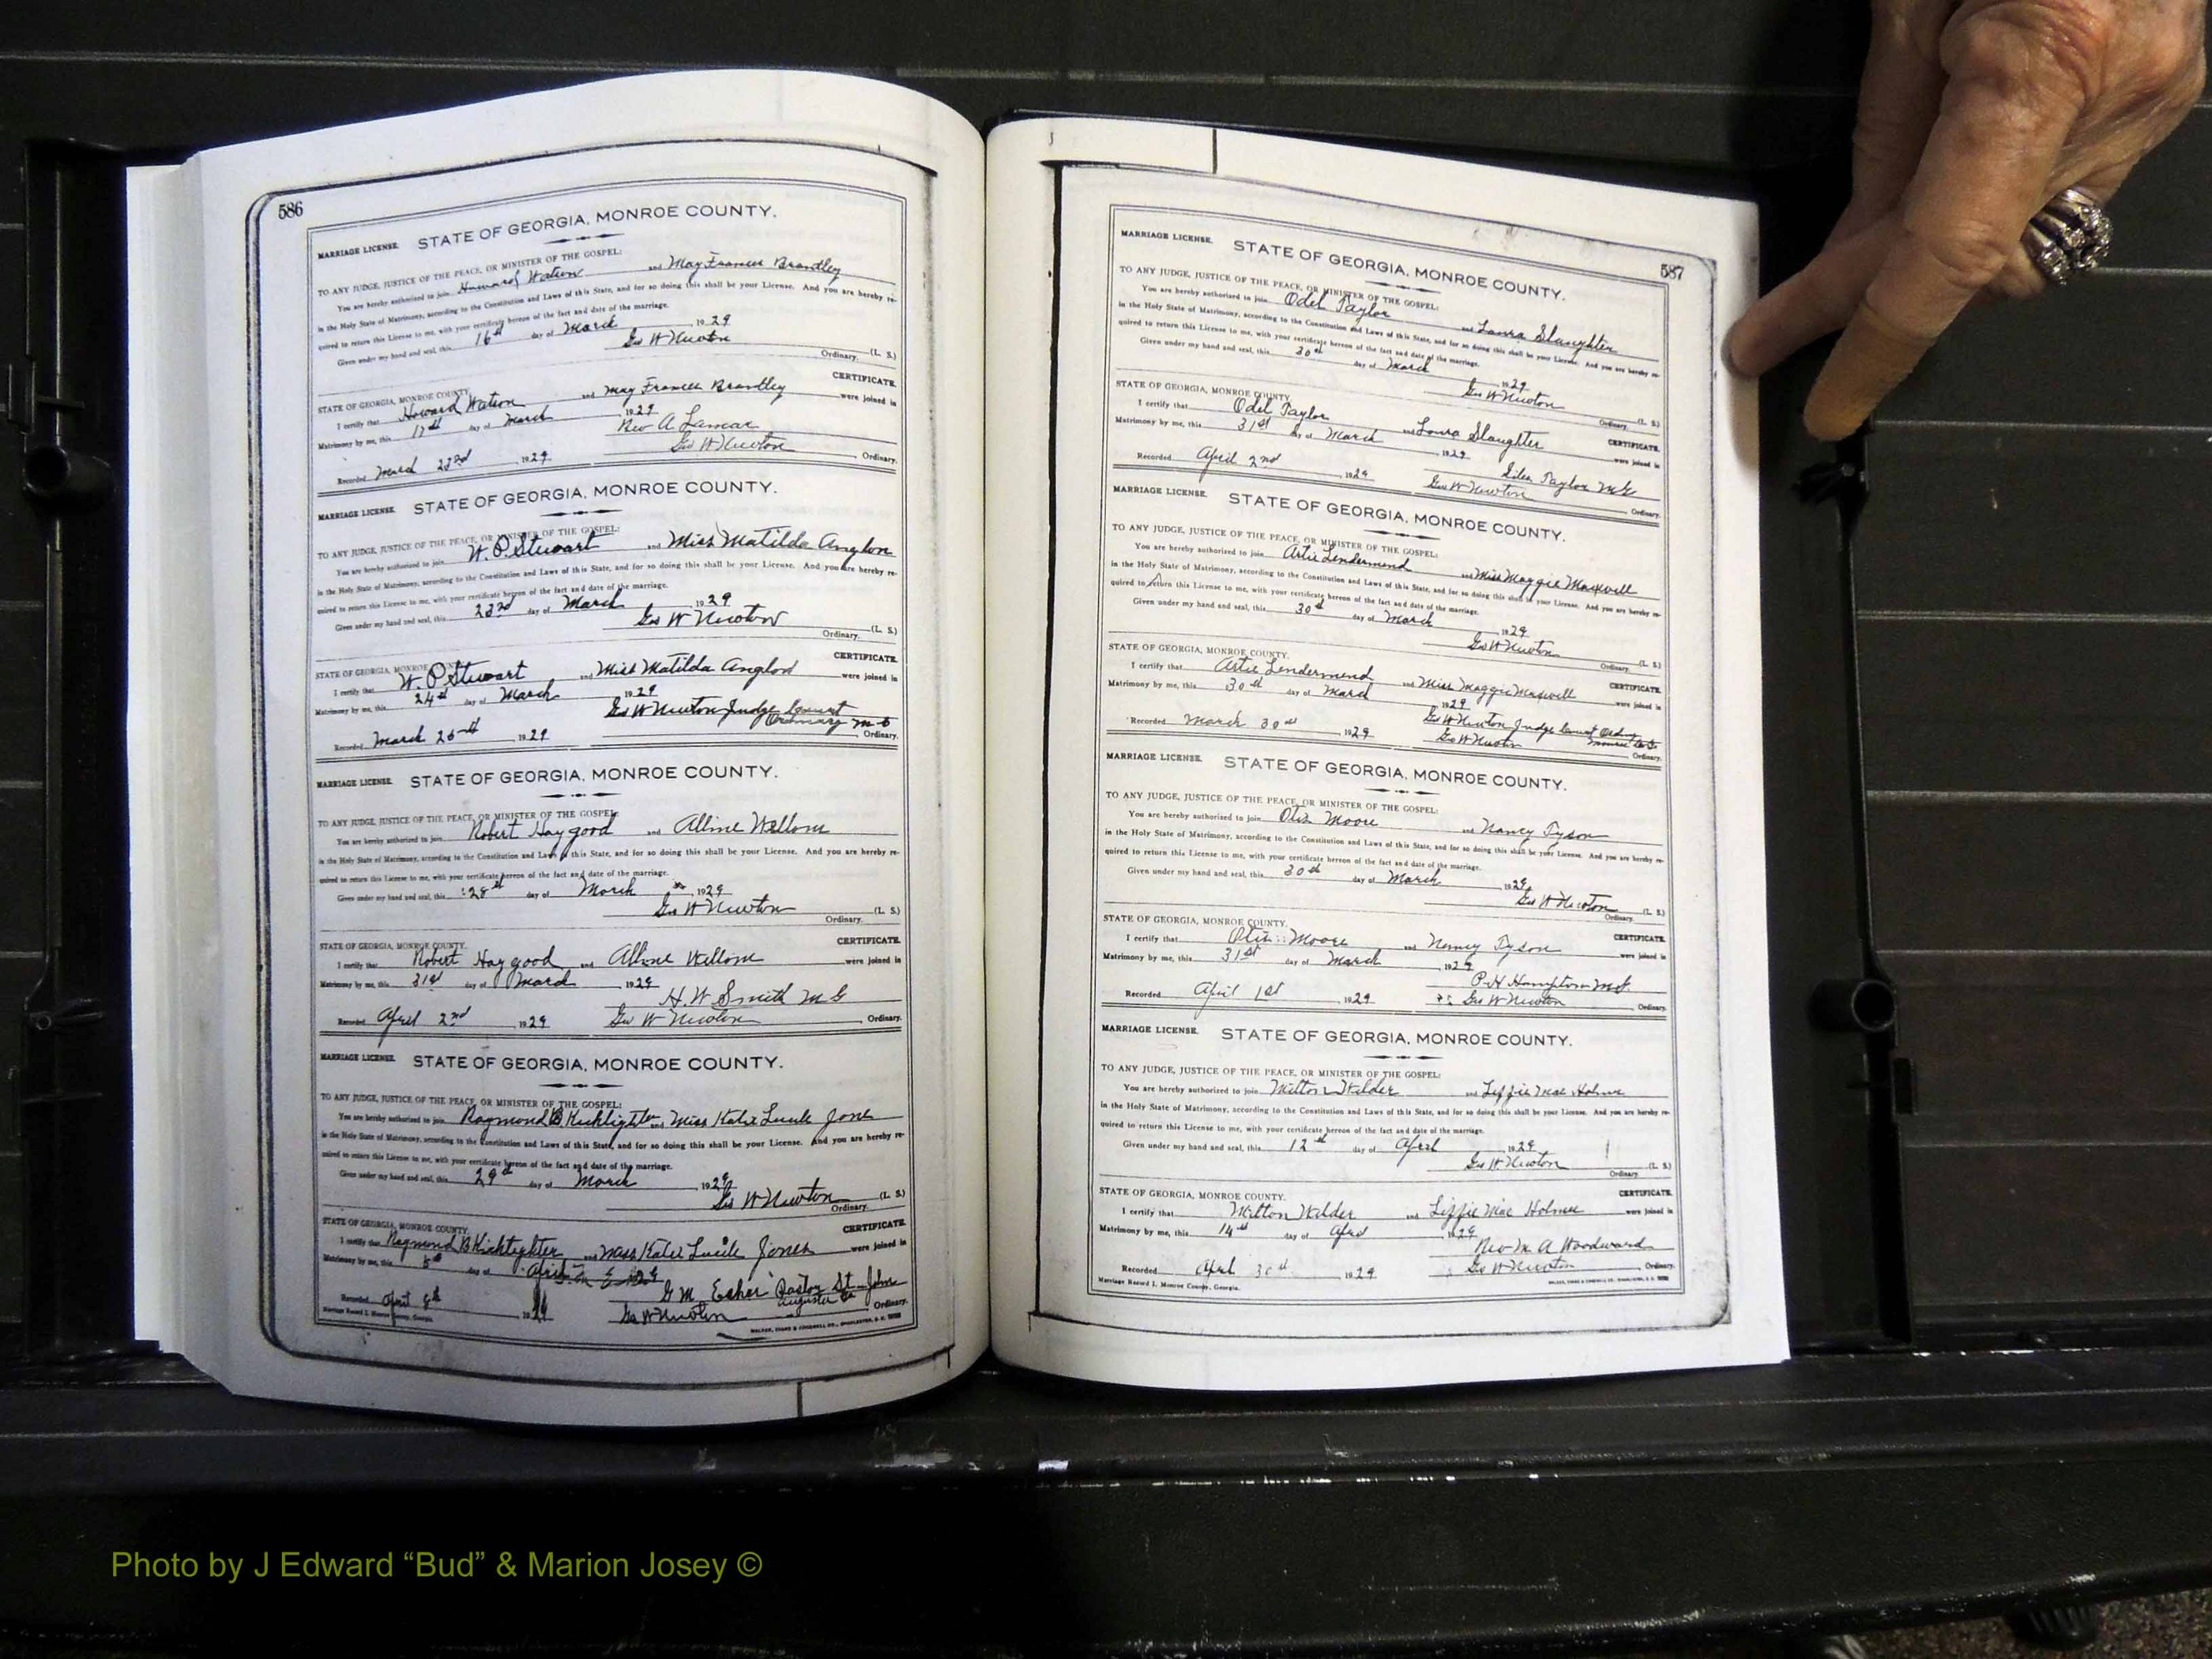 586
MARRIAGE LICENSE. STATE OF GEORGIA, MONROE COUNTY.
TO ANY JUDGE, JUSTICE OF THE PEACE, OR MINISTER OF THE GOSPEL:
You are hereby authorized to join Howard Watson and May Frances Brantley
in the Holy State of Matrimony, according to the Constitution and Laws of this State, and for so doing this shall be your License. And you are hereby re-
quired to return this License to me, with your certificate hereon of the fact and date of the marriage.
Given under my hand and seal, this 16th day of March 1929
Geo W Newton (L. S.)
Ordinary.
STATE OF GEORGIA, MONROE COUNTY. CERTIFICATE.
I certify that Howard Watson and May Frances Brantley were joined in
Matrimony by me, this 17th day of March 1929
Rev A Lamar
Recorded March 23rd 1929 Geo W Newton Ordinary.
MARRIAGE LICENSE. STATE OF GEORGIA, MONROE COUNTY.
TO ANY JUDGE, JUSTICE OF THE PEACE, OR MINISTER OF THE GOSPEL:
You are hereby authorized to join W. P. Stewart and Miss Matilda Anglon
in the Holy State of Matrimony, according to the Constitution and Laws of this State, and for so doing this shall be your License. And you are hereby re-
quired to return this License to me, with your certificate hereon of the fact and date of the marriage.
Given under my hand and seal, this 23rd day of March 1929
Geo W Newton (L. S.)
Ordinary.
STATE OF GEORGIA, MONROE COUNTY. CERTIFICATE.
I certify that W. P Stewart and Miss Matilda were joined in
Matrimony by me, this 24th day of March 1929
Geo W Newton Judge Court
Ordinary
Recorded March 1929 Ordinary.
MARRIAGE LICENSE. STATE OF GEORGIA, MONROE COUNTY.
TO ANY JUDGE, JUSTICE OF THE PEACE, OR MINISTER OF THE GOSPEL:
You are hereby authorized to join Robert Haygood and Alline
in the Holy State of Matrimony, according to the Constitution and Laws of this State, and for so doing this shall be your License. And you are hereby re-
quired to return this License to me, with your certificate hereon of the fact and date of the marriage.
Given under my hand and seal, this 28th day of March 1929
Geo W Newton (L. S.)
Ordinary.
STATE OF GEORGIA, MONROE COUNTY. CERTIFICATE.
I certify that Robert Haygood and Alline were joined in
Matrimony by me, this 31st day of March 1929
H. W Smith M G
Recorded April 2nd 1929 Geo W Newton Ordinary.
MARRIAGE LICENSE. STATE OF GEORGIA, MONROE COUNTY.
TO ANY JUDGE, JUSTICE OF THE PEACE, OR MINISTER OF THE GOSPEL:
You are hereby authorized to join Raymond B Kicklighter and Miss Katie Lucile Jones
in the Holy State of Matrimony, according to the Constitution and Laws of this State, and for so doing this shall be your License. And you are hereby re-
quired to return this License to me, with your certificate hereon of the fact and date of the marriage.
Given under my hand and seal, this 29th day of March 1929
Geo W Newton (L. S.)
Ordinary.
STATE OF GEORGIA, MONROE COUNTY. CERTIFICATE.
I certify that Raymond B Kicklighter and Miss Katie Lucile Jones were joined in
Matrimony by me, this 5th day of April
G M Pastor St John
Augusta Ga
Recorded April 8th 19 Geo W Newton Ordinary.
Marriage Record I. Monroe County, Georgia.
587
MARRIAGE LICENSE. STATE OF GEORGIA, MONROE COUNTY.
TO ANY JUDGE, JUSTICE OF THE PEACE, OR MINISTER OF THE GOSPEL:
You are hereby authorized to join Odel Taylor and Laura Slaughter
in the Holy State of Matrimony, according to the Constitution and Laws of this State, and for so doing this shall be your License. And you are hereby re-
quired to return this License to me, with your certificate hereon of the fact and date of the marriage.
Given under my hand and seal, this 30th day of March 1929
Geo W Newton (L. S.)
Ordinary.
STATE OF GEORGIA, MONROE COUNTY. CERTIFICATE.
I certify that Odel Taylor and Laura Slaughter were joined in
Matrimony by me, this 31st day of March 1929
Taylor M G
Recorded April 2nd 1929 Geo W Newton Ordinary.
MARRIAGE LICENSE. STATE OF GEORGIA, MONROE COUNTY.
TO ANY JUDGE, JUSTICE OF THE PEACE, OR MINISTER OF THE GOSPEL:
You are hereby authorized to join Artie Lendermend and Miss Maggie Maxwell
in the Holy State of Matrimony, according to the Constitution and Laws of this State, and for so doing this shall be your License. And you are hereby re-
quired to return this License to me, with your certificate hereon of the fact and date of the marriage.
Given under my hand and seal, this 30th day of March 1929
Geo W Newton (L. S.)
Ordinary.
STATE OF GEORGIA, MONROE COUNTY. CERTIFICATE.
I certify that Artie Lendermend and Miss Maggie Maxwell were joined in
Matrimony by me, this 30th day of March 1929
Geo W Newton Judge Court
Recorded March 30th 1929 Geo W Newton Ordinary.
MARRIAGE LICENSE. STATE OF GEORGIA, MONROE COUNTY.
TO ANY JUDGE, JUSTICE OF THE PEACE, OR MINISTER OF THE GOSPEL:
You are hereby authorized to join Otis Moore and Nancy Tyson
in the Holy State of Matrimony, according to the Constitution and Laws of this State, and for so doing this shall be your License. And you are hereby re-
quired to return this License to me, with your certificate hereon of the fact and date of the marriage.
Given under my hand and seal, this 30th day of March 1929
Geo W Newton (L. S.)
Ordinary.
STATE OF GEORGIA, MONROE COUNTY. CERTIFICATE.
I certify that Otis Moore and Nancy Tyson were joined in
Matrimony by me, this 31st day of March 1929
P. H Hampton M. G.
Recorded April 1st 1929 Geo W Newton Ordinary.
MARRIAGE LICENSE. STATE OF GEORGIA, MONROE COUNTY.
TO ANY JUDGE, JUSTICE OF THE PEACE, OR MINISTER OF THE GOSPEL:
You are hereby authorized to join Milton Wilder and Lizzie Mae Holmes
in the Holy State of Matrimony, according to the Constitution and Laws of this State, and for so doing this shall be your License. And you are hereby re-
quired to return this License to me, with your certificate hereon of the fact and date of the marriage.
Given under my hand and seal, this 12th day of April 1929
Geo W Newton (L. S.)
Ordinary.
STATE OF GEORGIA, MONROE COUNTY. CERTIFICATE.
I certify that Milton Wilder and Lizzie Mae Holmes were joined in
Matrimony by me, this 14th day of April 1929
Rev M. A Woodward
Recorded April 30th 1929 Geo W Newton Ordinary.
Marriage Record I. Monroe County, Georgia.
Photo by J Edward “Bud” & Marion Josey ©